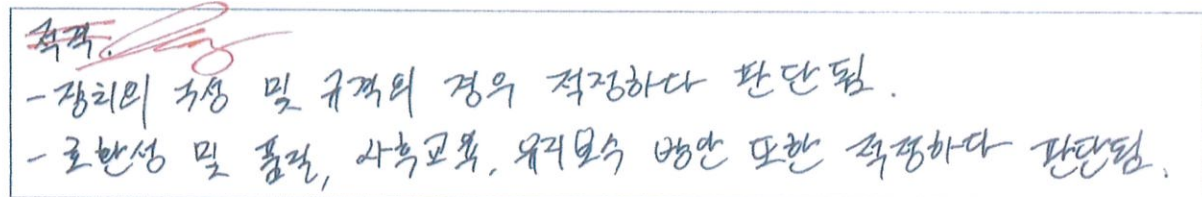 적격.
- 장치의 구성 및 규격의 경우 적정하다 판단됨.
- 호환성 및 품질, 사후교육, 유지보수 방안 또한 적정하다 판단됨.